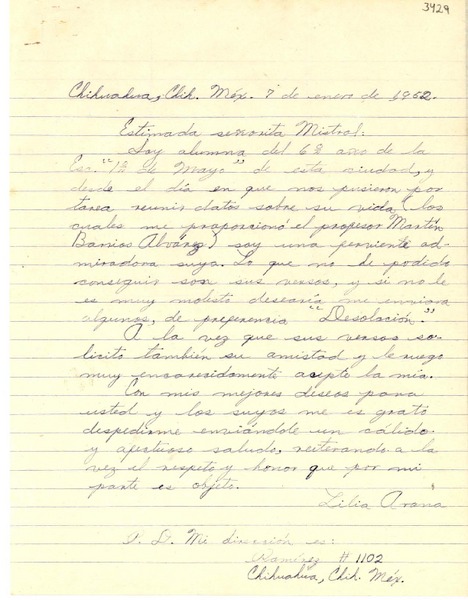 3429
Chihuahua, Chih. Méx. 7 de enero de 1952.
Estimada señorita Mistral:
Soy alumna del 6º año de la
Esc. "1º de Mayo" de esta ciudad, y
desde el día en que nos pusieron por
tarea reunir datos sobre su vida, (los
cuales me proporcionó el profesor Martín
Barrios Alvárez) soy una ferviente ad-
miradora suya. Lo que no he podido
conseguir son sus versos, y si no le
es muy molesto desearía me enviara
algunos, de preferencia "Desolación."
A la vez que sus versos so-
licito también su amistad y le ruego
muy encarecidamente acepte la mía.
Con mis mejores deseos para
usted y los suyos me es grato
despedirme enviándole un cálido
y afectuoso saludo, reiterando a la
vez el respeto y honor que por mi
parte es objeto.
Lilia Arana
P. D. Mi dirección es:
Ramírez # 1102
Chihuahua, Chih. Méx.